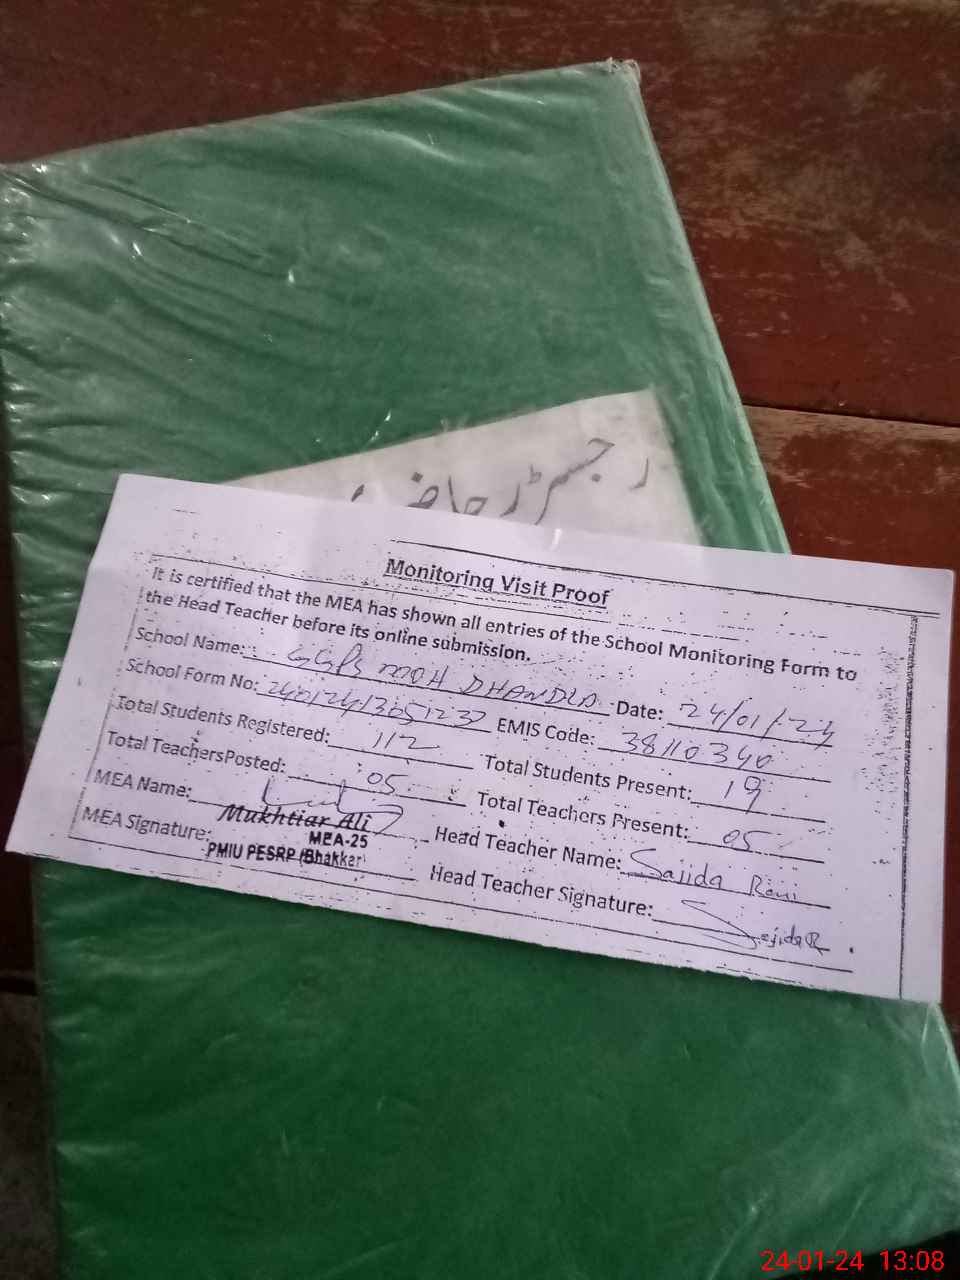 رجسٹر حاضر
Monitoring Visit Proof
It is certified that the MEA has shown all entries of the School Monitoring Form to
the Head Teacher before its online submission.
School Name: GGPS MOH DHANDLA Date: 24/01/24
School Form No: EMIS Code: 38110340
Total Students Registered: 112 Total Students Present: 19
Total TeachersPosted: 05 Total Teachers Present: 05
MEA Name: Mukhtiar Ali Head Teacher Name: Sajida Rani
MEA Signature: MEA-25 Head Teacher Signature: SajidaR
PMIU PESRP (Bhakkar)
24-01-24 13:08